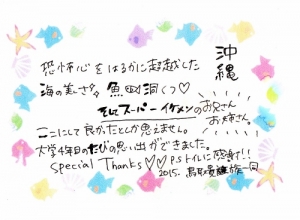 沖縄
恐怖心をはるかに超越した
海の美しさ 魚
そしてスーパーイケメンのお兄さん
お姉さん。
ここにして良かったとしか思えません。
大学4年目のたびの思い出ができました。
Special Thanks♡♡ P.S トイレに感謝!!
2015. 鳥取 一同